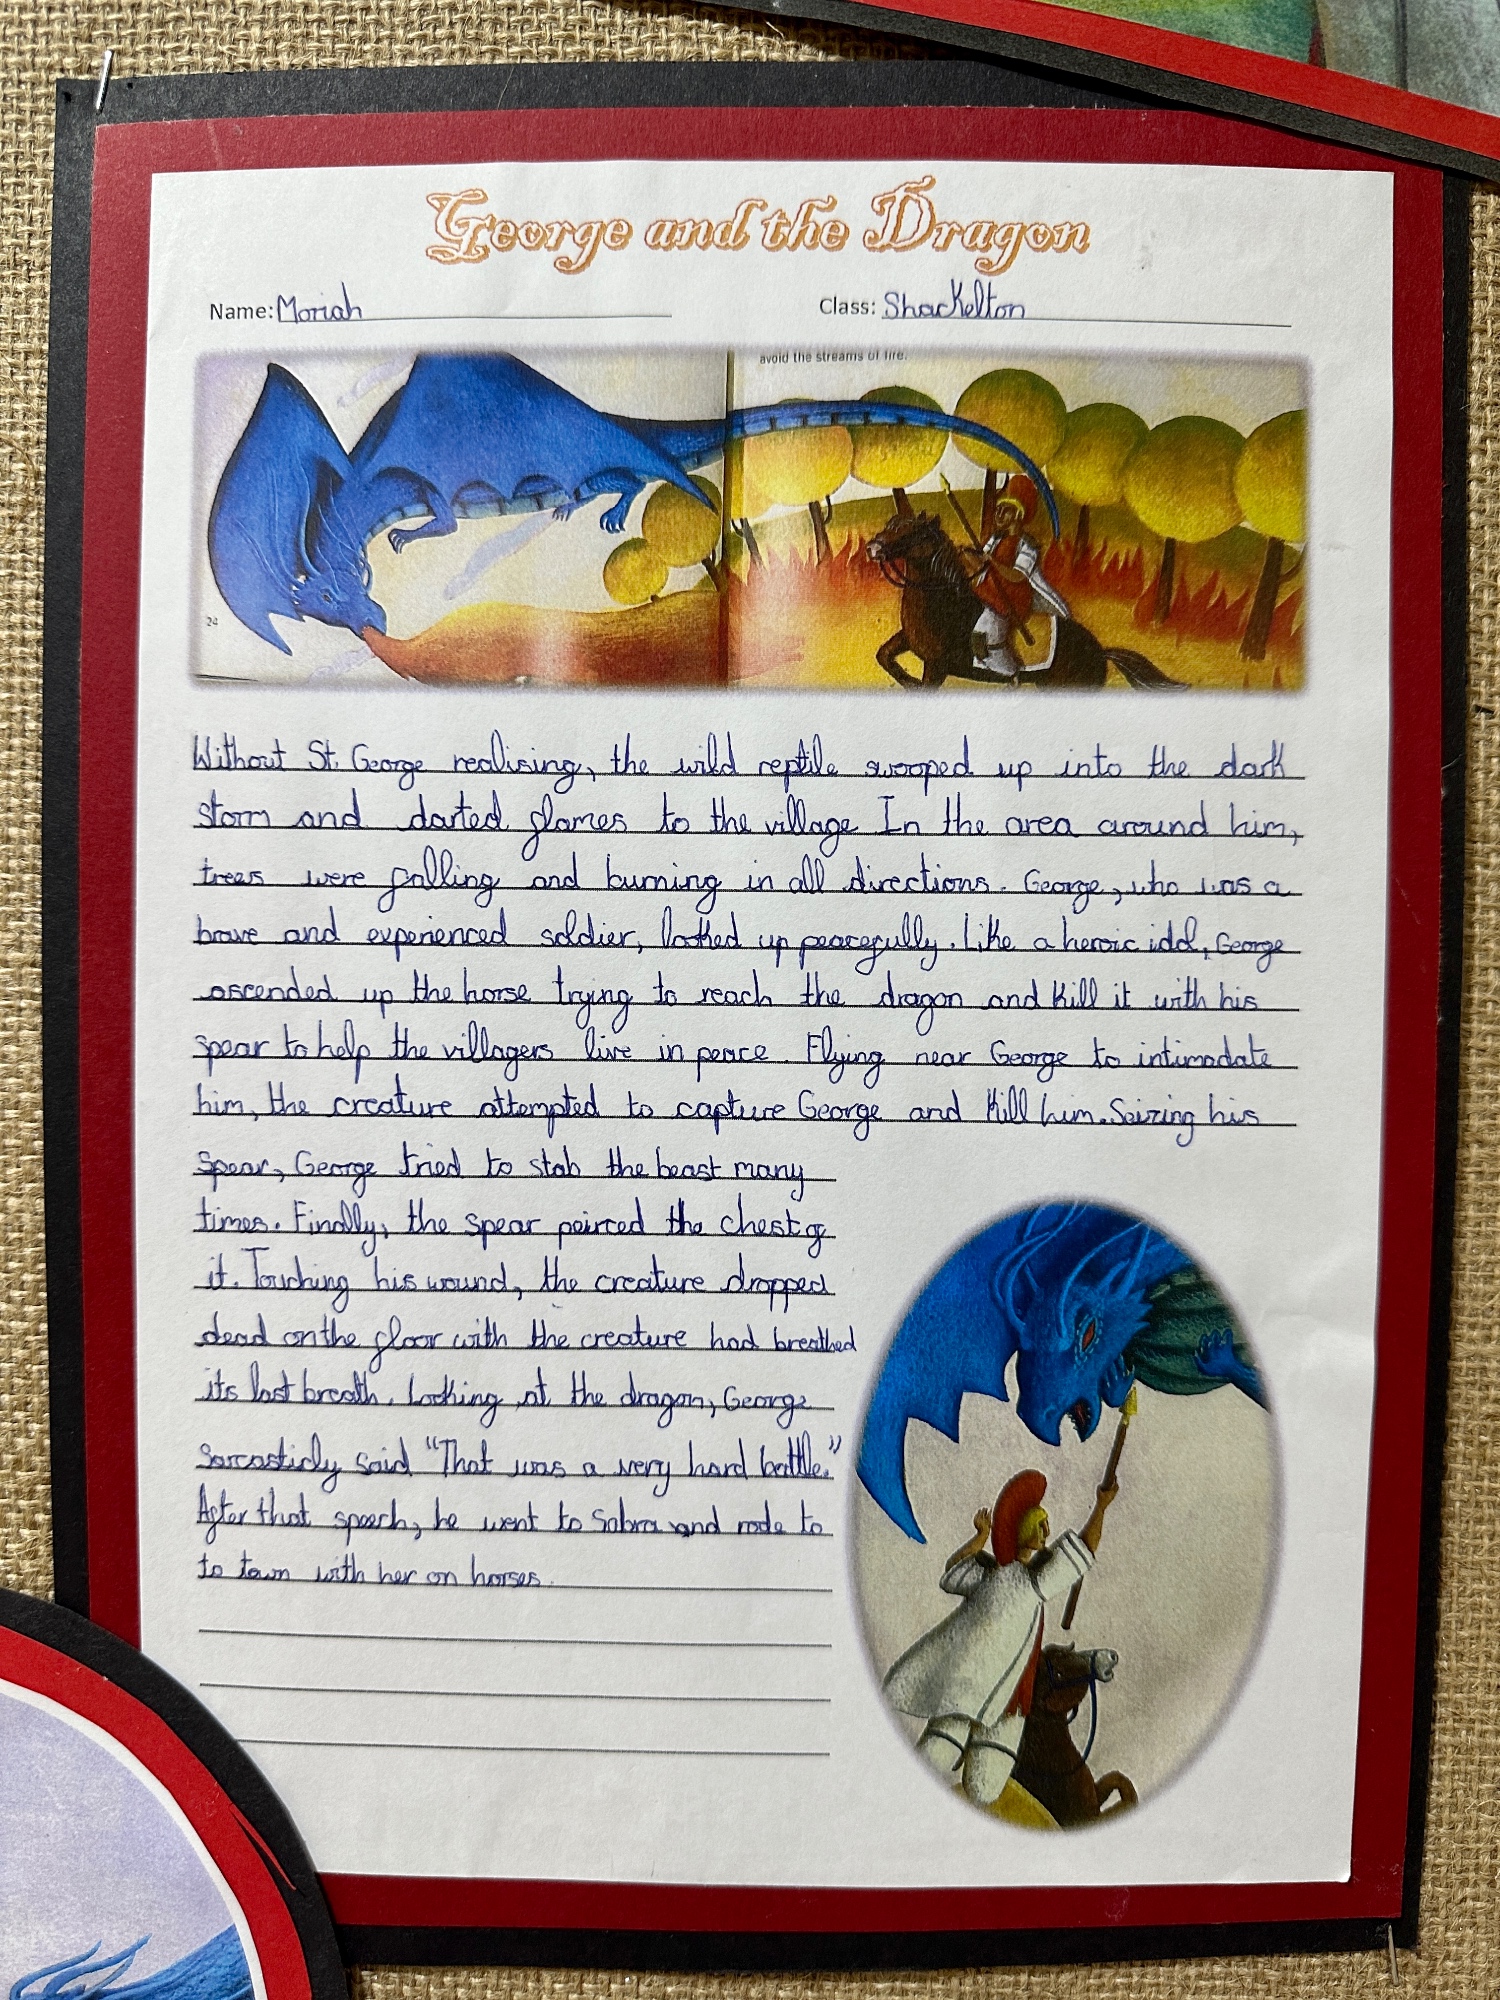 George and the Dragon
Name: Moriah Class: Shackelton
avoid the streams of fire.
24
Without St. George realising, the wild reptile swooped up into the dark
storm and darted flames to the village In the area around him,
trees were falling and burning in all directions. George, who was a
brave and experienced soldier, looked up peacefully. Like a heroic idol, George
ascended up the horse trying to reach the dragon and kill it with his
spear to help the villagers live in peace. Flying near George to intimadate
him, the creature attempted to capture George and kill him. Seizing his
spear, George tried to stab the beast many
times. Finally, the spear peirced the chest of
it. Touching his wound, the creature dropped
dead on the floor with the creature had breathed
its last breath. Looking at the dragon, George
sarcasticly said "That was a very hard battle."
After that speech, he went to Sabra and rode to
to town with her on horses.